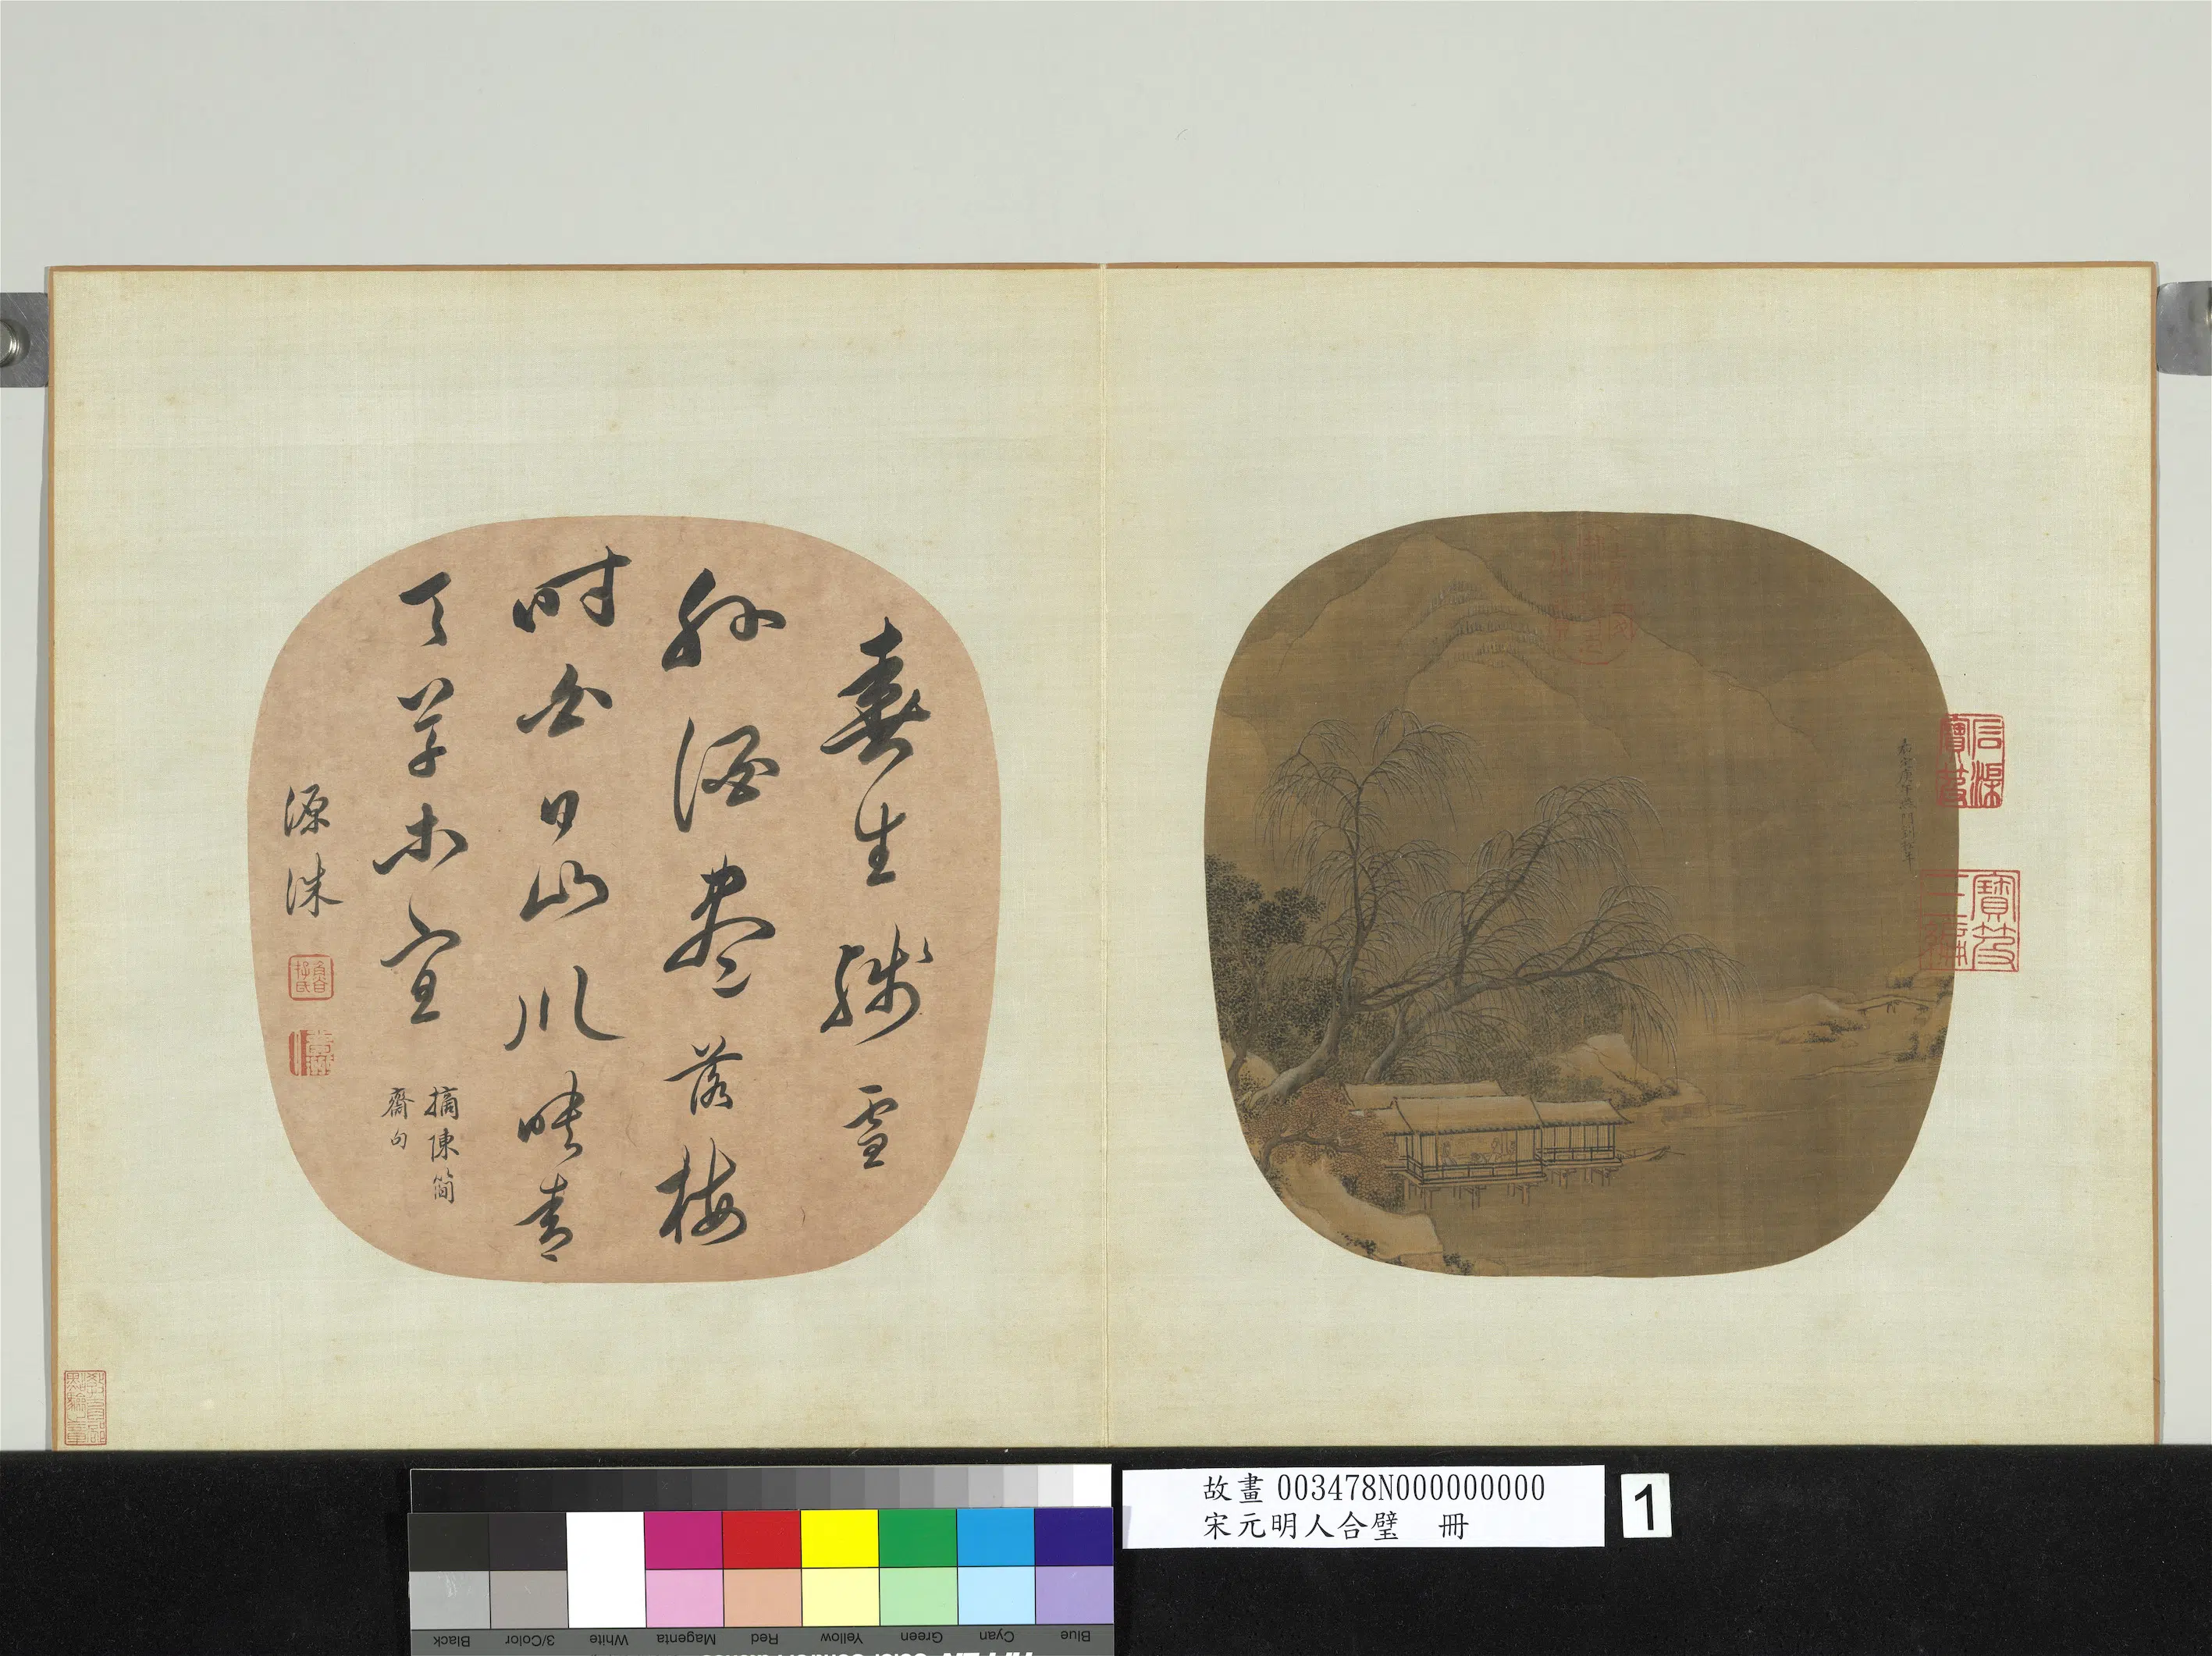 石渠
寶笈
寶笈
三編
春生殘雪
外酒盡落梅
時白日山川映青
天草木宜
摘陳簡
齋句
源洙
教育部
點驗之章
故畫003478N000000000
宋元明人合璧 冊
1
Blue Cyan Green Yellow Red Magenta White 3/Color Black